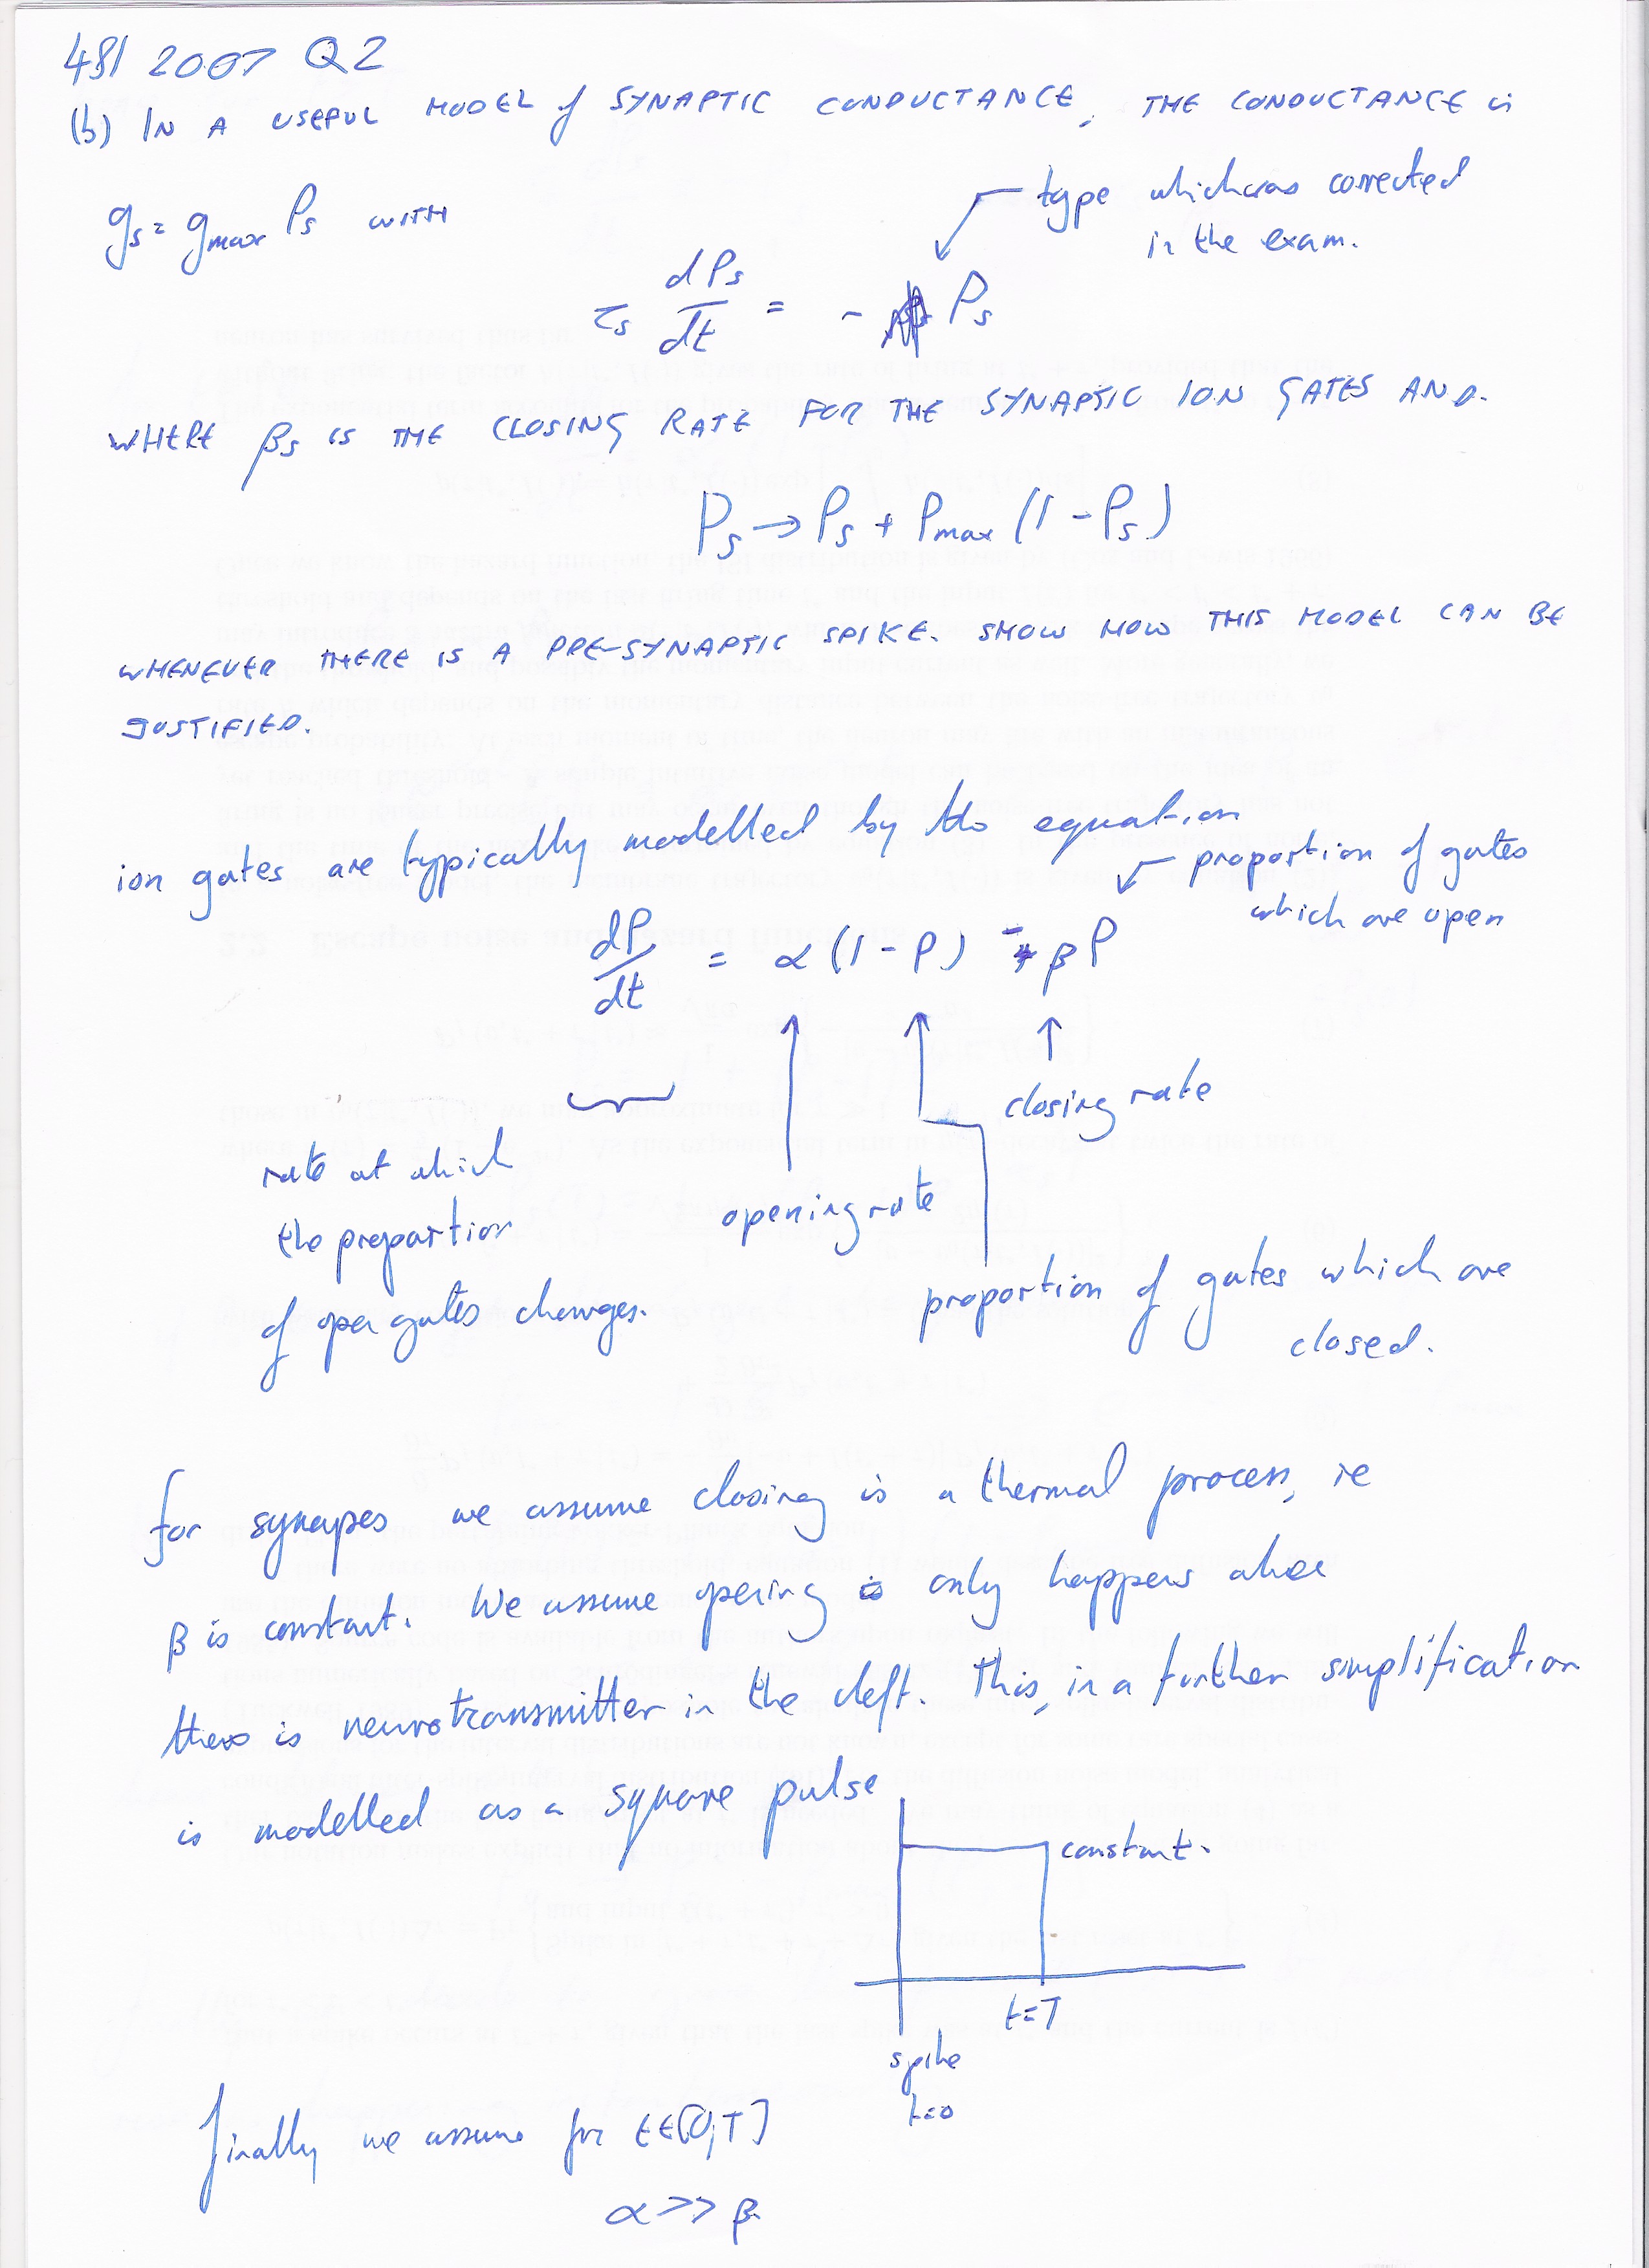 481 2007 Q2
(b) IN A USEFUL MODEL of SYNAPTIC CONDUCTANCE, THE CONDUCTANCE is
type which was corrected
in the exam.
gs = gmax Ps WITH
τs dPs/dt = - Ps
WHERE βs IS THE CLOSING RATE FOR THE SYNAPTIC ION GATES AND.
Ps → Ps + Pmax (1 - Ps)
WHENEVER THERE IS A PRE-SYNAPTIC SPIKE. SHOW HOW THIS MODEL CAN BE
JUSTIFIED.
ion gates are typically modelled by the equation
proportion of gates
which are open
dP/dt = α(1 - P) - βP
closing rate
rate at which
the proportion
of open gates changes.
opening rate
proportion of gates which are
closed.
for synapes we assume closing is a thermal process, ie
β is constant. We assume opening is only happens when
there is neurotransmitter in the cleft. This, in a further simplification
is modelled as a square pulse
constant.
t=T
spike
t=0
finally we assume for t∈[0,T]
α >> β